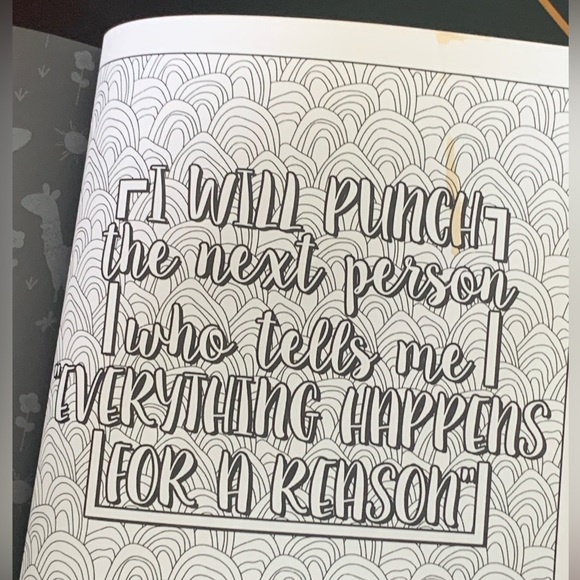 I WILL PUNCH
the next person
who tells me
"EVERYTHING HAPPENS
FOR A REASON"